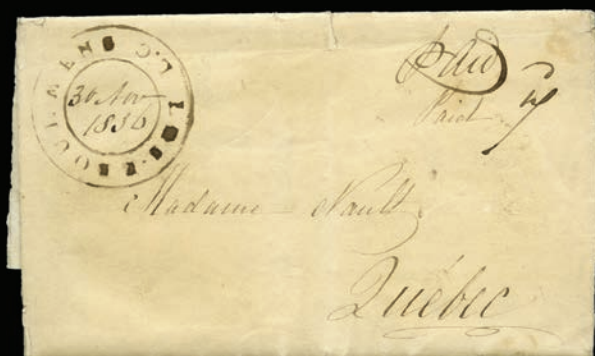 LES·EBOULEMENS L.C.
30 Nov
1836
Paid
Paid 7
Madame Nault
Québec